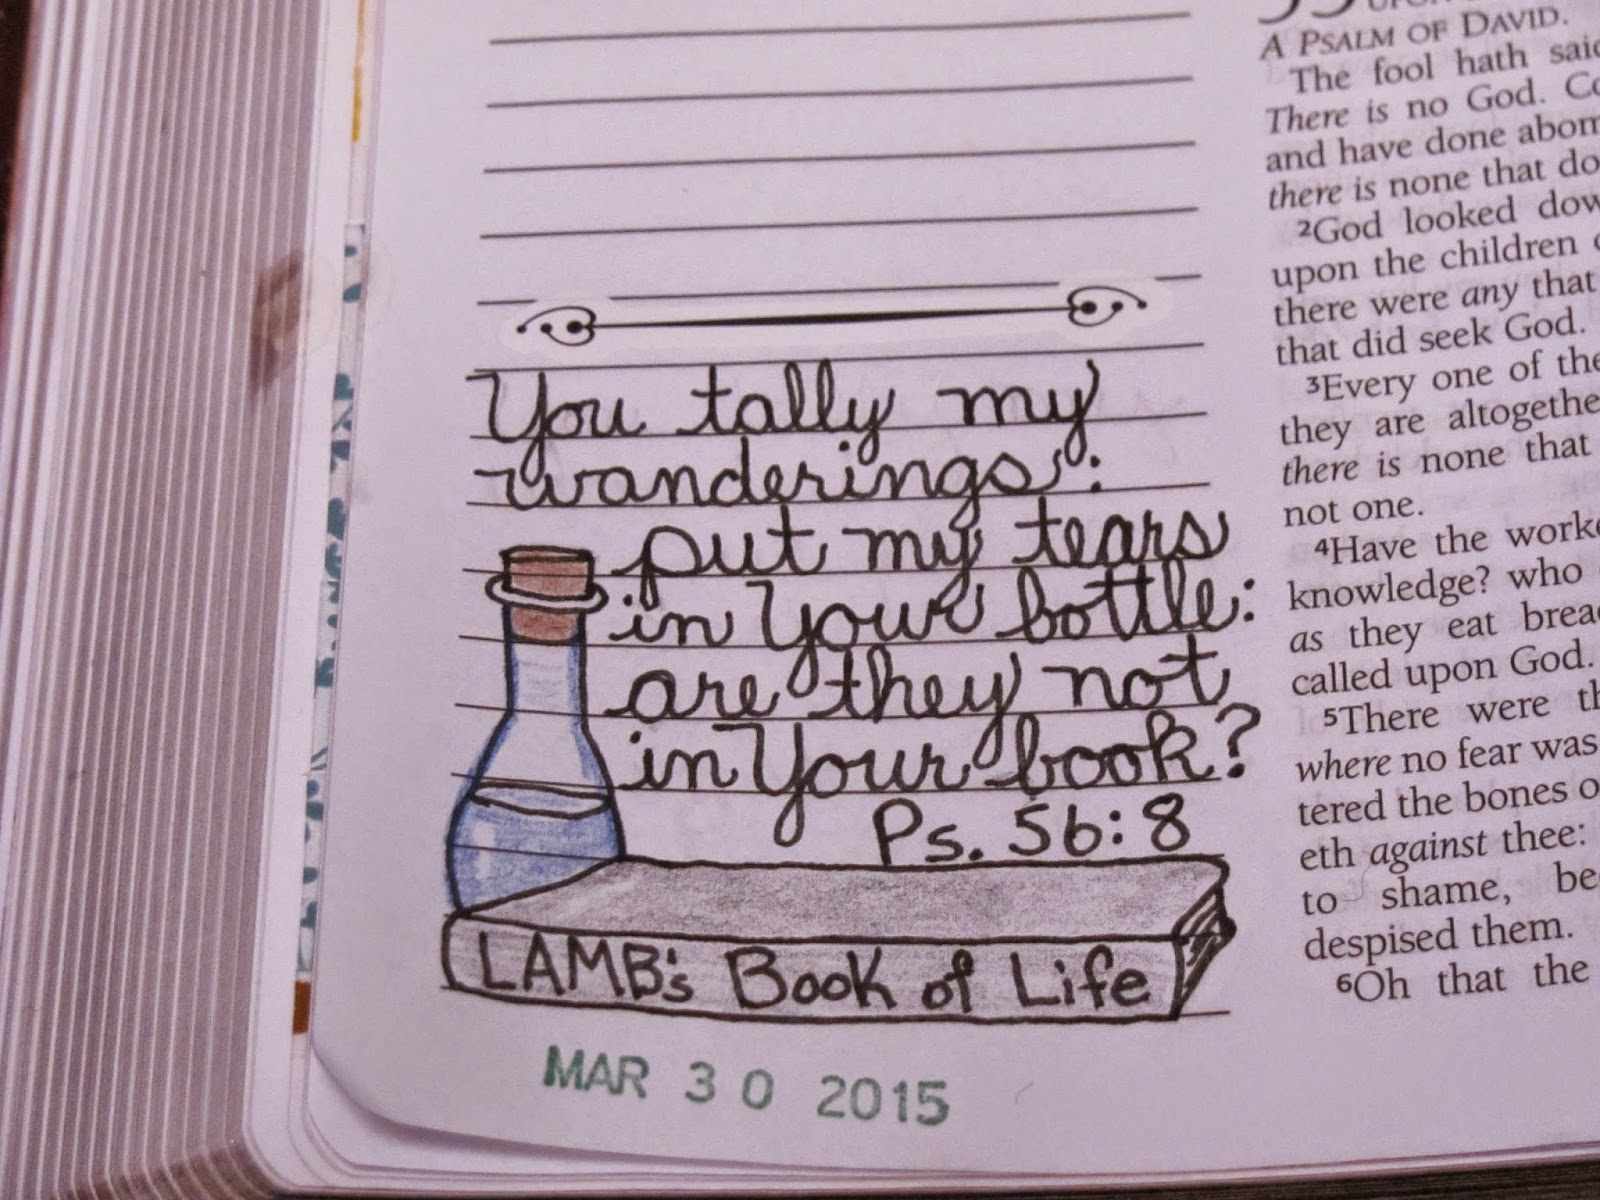 You tally my
wanderings:
put my tears
in Your bottle:
are they not
in Your book?
Ps. 56:8
LAMB's Book of Life
MAR 30 2015
A PSALM OF DAVID.
The fool hath said
There is no God.
and have done
there is none that
2God looked
upon the children
there were any that
that did seek God.
3Every one of
they are
there is none that
not one.
4Have the
knowledge? who
as they eat
called upon God.
5There were
where no fear was
tered the bones
eth against thee:
to shame,
despised them.
6Oh that the